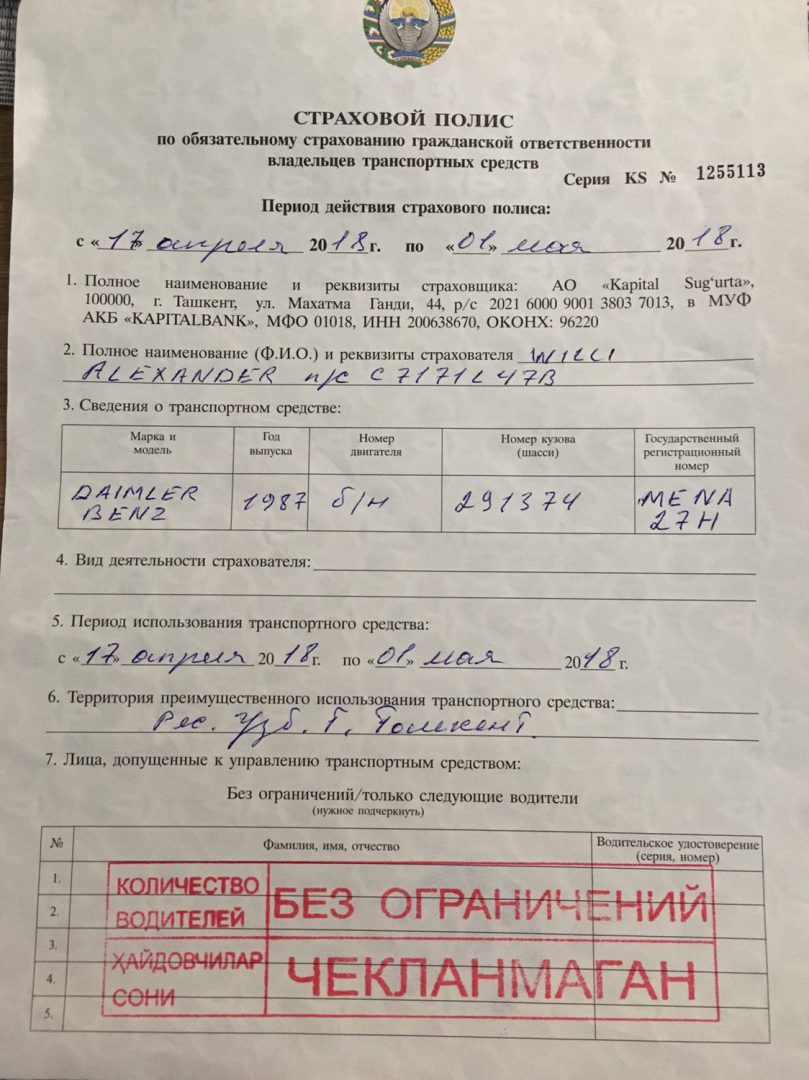 СТРАХОВОЙ ПОЛИС
по обязательному страхованию гражданской ответственности
владельцев транспортных средств
Серия KS № 1255113
Период действия страхового полиса:
с «17» апреля 2018г. по «01» мая 2018г.
1. Полное наименование и реквизиты страховщика: АО «Kapital Sug‘urta»,
100000, г. Ташкент, ул. Махатма Ганди, 44, р/с 2021 6000 9001 3803 7013, в МУФ
АКБ «KAPITALBANK», МФО 01018, ИНН 200638670, ОКОНХ: 96220
2. Полное наименование (Ф.И.О.) и реквизиты страхователя WILLI
ALEXANDER п/с C7171L47B
3. Сведения о транспортном средстве:
Марка и модель Год выпуска Номер двигателя Номер кузова (шасси) Государственный регистрационный номер
DAIMLER BENZ 1987 б/н 291374 MENA 27H
4. Вид деятельности страхователя:
5. Период использования транспортного средства:
с «17» апреля 2018г. по «01» мая 2018 г.
6. Территория преимущественного использования транспортного средства:
Рес. Узб. Г. Ташкент.
7. Лица, допущенные к управлению транспортным средством:
Без ограничений/только следующие водители
(нужное подчеркнуть)
№ Фамилия, имя, отчество Водительское удостоверение (серия, номер)
1.
2.
3.
4.
5.
КОЛИЧЕСТВО ВОДИТЕЛЕЙ БЕЗ ОГРАНИЧЕНИЙ
ҲАЙДОВЧИЛАР СОНИ ЧЕКЛАНМАГАН